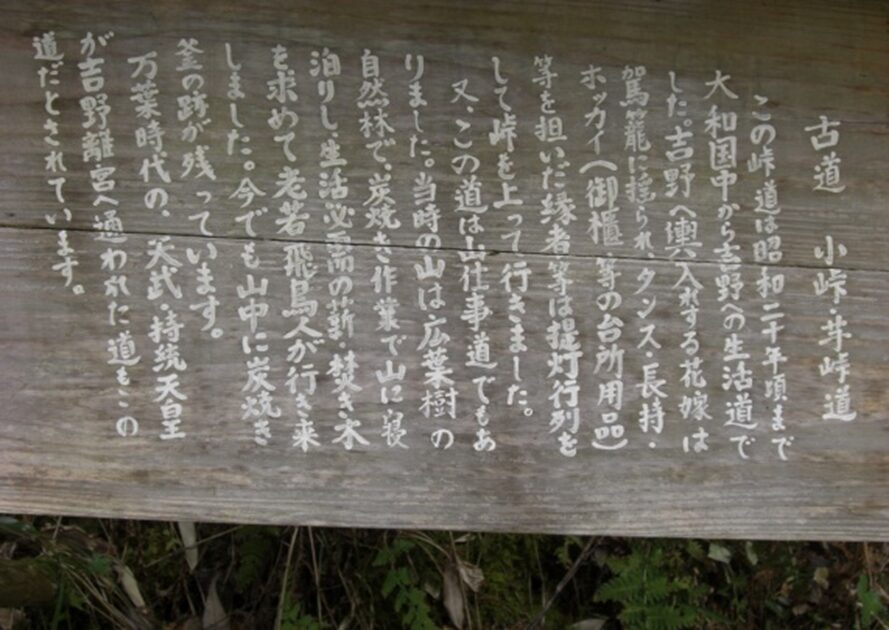 古道　小峠・芋峠道
この峠道は昭和二十年頃まで
大和国中から吉野への生活道で
した。吉野へ輿入れする花嫁は
駕籠に揺られ、タンス・長持・
ホッカイ(御櫃、等の台所用品)
等を担いだ縁者等は提灯行列を
して峠を上って行きました。
又、この道は山仕事道でもあ
りました。当時の山は広葉樹の
自然林で、炭焼き作業で山に寝
泊りし、生活必需の薪・焚き木
を求めて老若飛鳥人が行き来
しました。今でも山中に炭焼き
釜の跡が残っています。
万葉時代の、天武・持統天皇
が吉野離宮へ通われた道もこの
道だとされています。